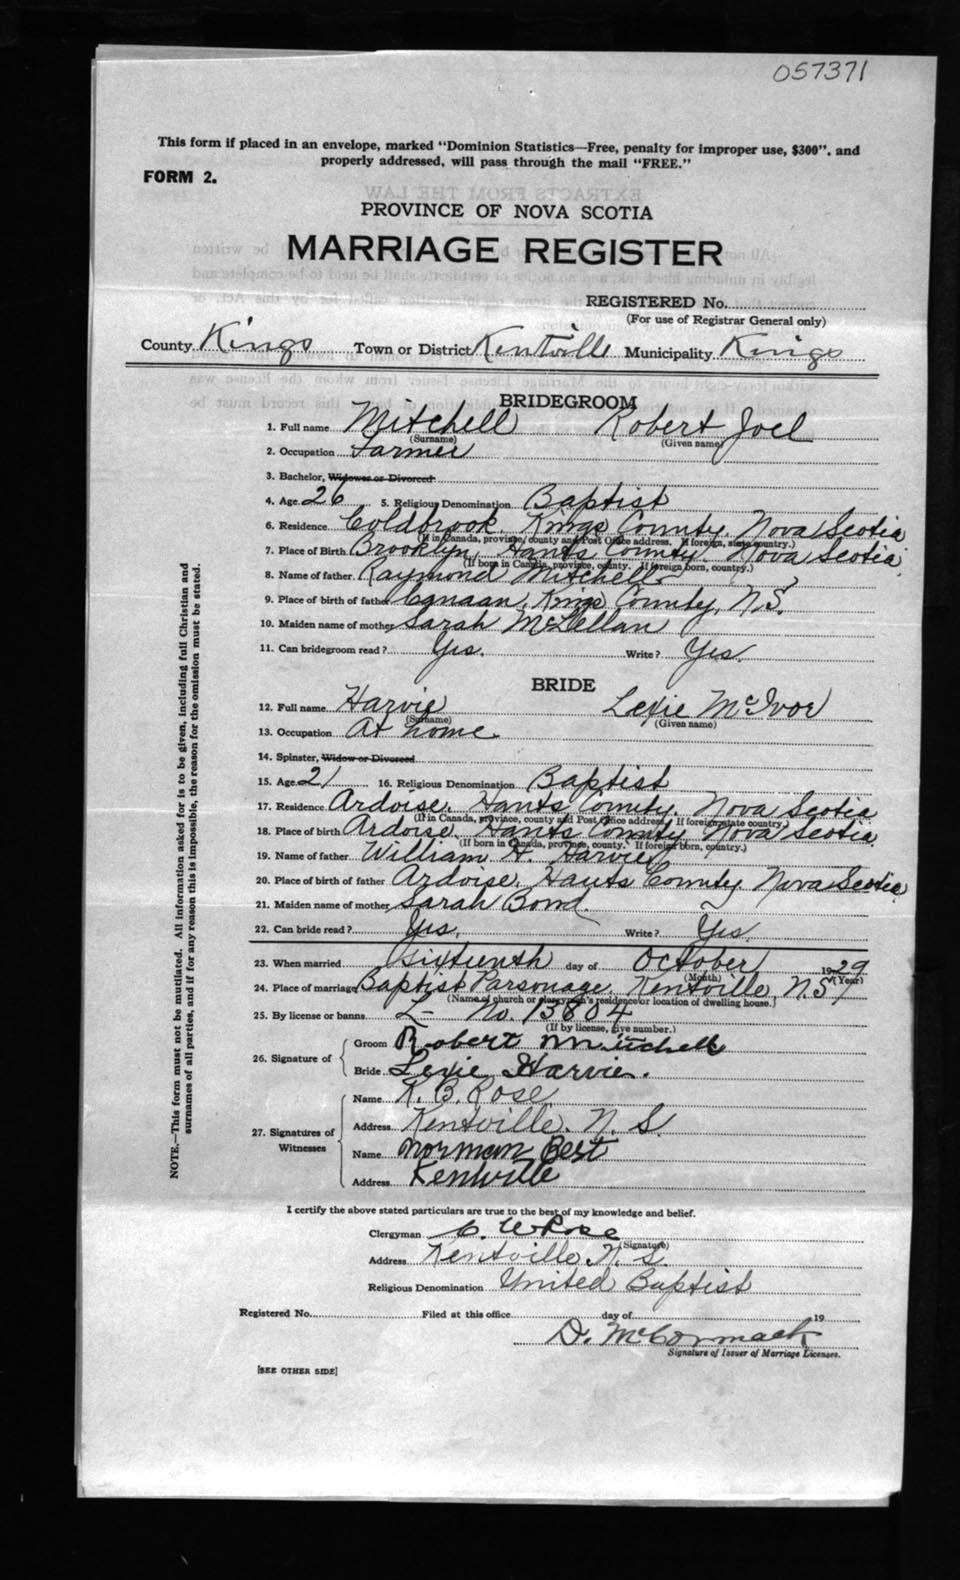 057371
This form if placed in an envelope, marked "Dominion Statistics—Free, penalty for improper use, $300", and
properly addressed, will pass through the mail "FREE."
FORM 2.
PROVINCE OF NOVA SCOTIA
MARRIAGE REGISTER
REGISTERED No.
(For use of Registrar General only)
County Kings Town or District Kentville Municipality Kings
BRIDEGROOM
1. Full name Mitchell Robert Joel
(Surname) (Given name)
2. Occupation Farmer
3. Bachelor, Widower or Divorced
4. Age 26 5. Religious Denomination Baptist
6. Residence Coldbrook, Kings County, Nova Scotia
(If in Canada, province, county and Post Office address. If foreign, state country.)
7. Place of Birth Brooklyn, Hants County, Nova Scotia
(If born in Canada, province, county. If foreign born, country.)
8. Name of father Raymond Mitchell
9. Place of birth of father Canaan, Kings County, N.S.
10. Maiden name of mother Sarah McLellan
11. Can bridegroom read? Yes. Write? Yes.
BRIDE
12. Full name Harvie Lexie McIvor
(Surname) (Given name)
13. Occupation At home.
14. Spinster, Widow or Divorced
15. Age 21 16. Religious Denomination Baptist
17. Residence Ardoise, Hants County, Nova Scotia
(If in Canada, province, county and Post Office address. If foreign state country.)
18. Place of birth Ardoise, Hants County, Nova Scotia.
(If born in Canada, province, county. If foreign born, country.)
19. Name of father William H. Harvie
20. Place of birth of father Ardoise, Hants County Nova Scotia.
21. Maiden name of mother Sarah Bond
22. Can bride read? Yes. Write? Yes.
23. When married Sixteenth day of October 1929
(Month) (Year)
24. Place of marriage Baptist Parsonage, Kentville, N.S.
(Name of church or clergyman's residence or location of dwelling house.)
25. By license or banns L- No. 13804
(If by license, give number.)
26. Signature of Groom Robert Mitchell
Bride Lexie Harvie.
27. Signatures of Witnesses Name K. B. Rose
Address Kentville, N. S.
Name Norman Best
Address Kentville
I certify the above stated particulars are true to the best of my knowledge and belief.
Clergyman C. W Rose
(Signature)
Address Kentville, N. S.
Religious Denomination United Baptist
Registered No. Filed at this office day of 19
D. McCormack
Signature of Issuer of Marriage Licenses.
[SEE OTHER SIDE]
NOTE.—This form must not be mutilated. All information asked for is to be given, including full Christian and
surnames of all parties, and if for any reason this is impossible, the reason for the omission must be stated.